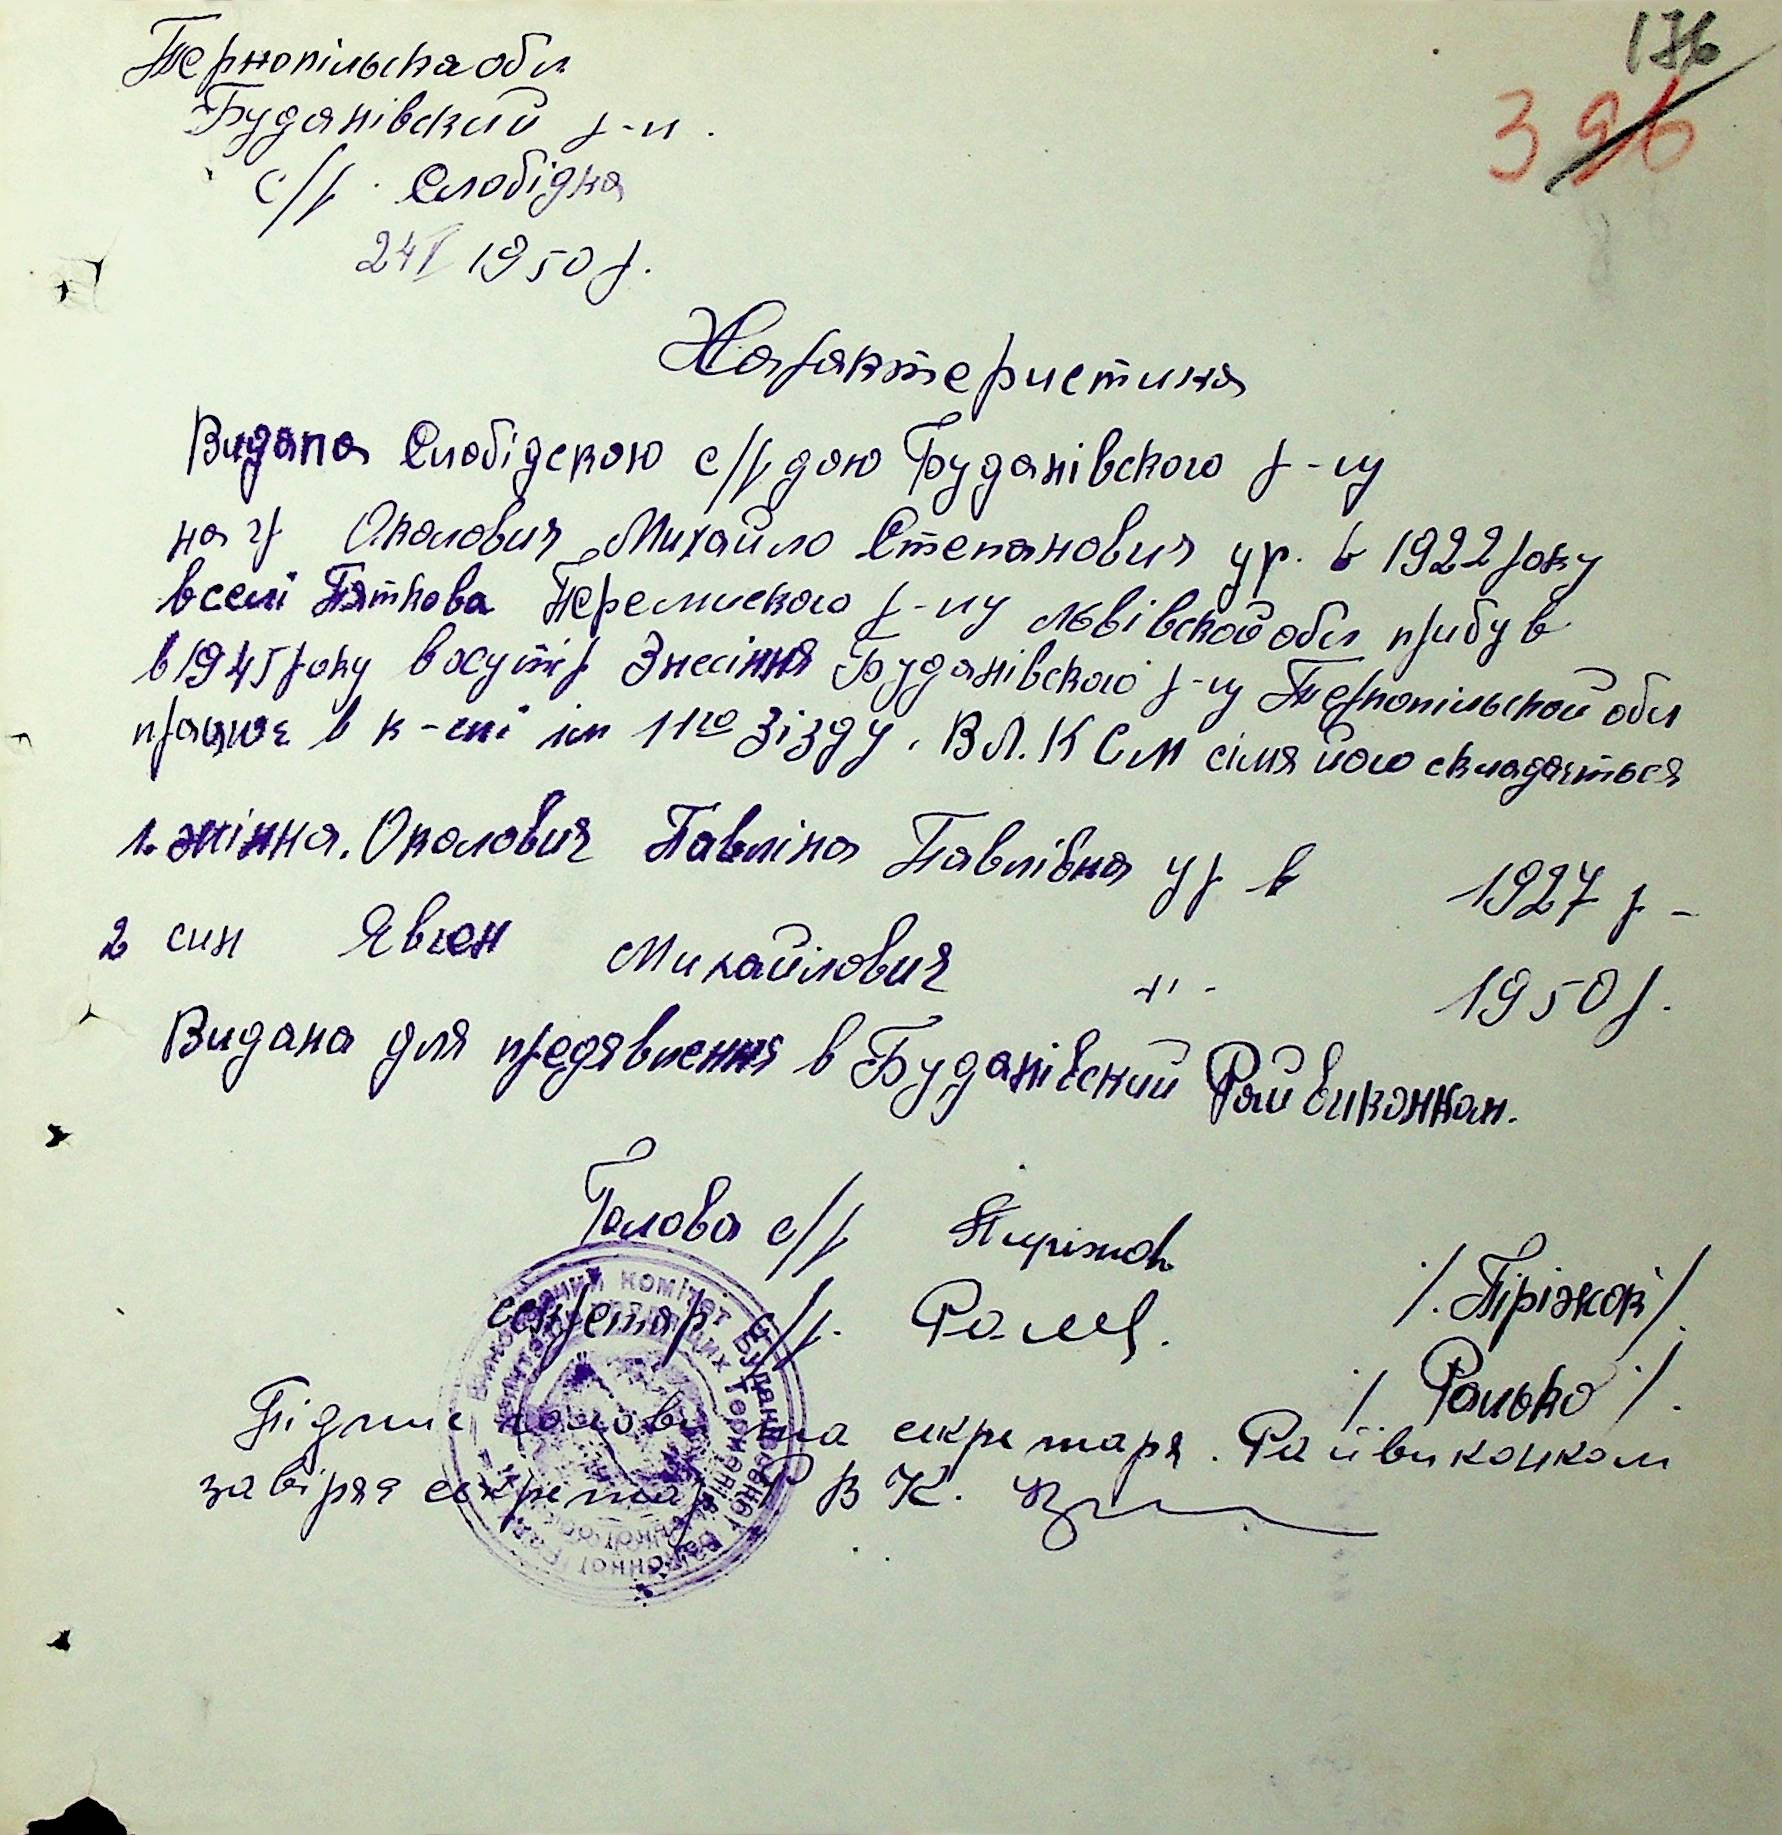 176
396
Тернопільска обл
Буданівский р-н.
с/р. Слобідка
24/І 1950 р.
Характеристика
Видана Слобідскою с/радою Буданівского р-ну
на гр Околович Михайло Степанович ур. в 1922 року
в селі Пяткова Перемиского р-ну Львівской обл прибув
в 1945 року в хутір Знесіння Буданівского р-ну Тернопільской обл
працює в к-спі ім 11го Зізду. В Л.К С М сімя його складаеться
1. жінка. Околович Павліна Павлівна ур в 1927 р -
2 син Явген Михайлович -"- 1950 р.
Видана для предявлення в Буданівский Райвиконком.
Голова с/р Піріжок /. Піріжок /.
секретар с/р. /. Ралько /.
Підпис голови та секретаря. Райвиконком
завіряє секретар Р В К.